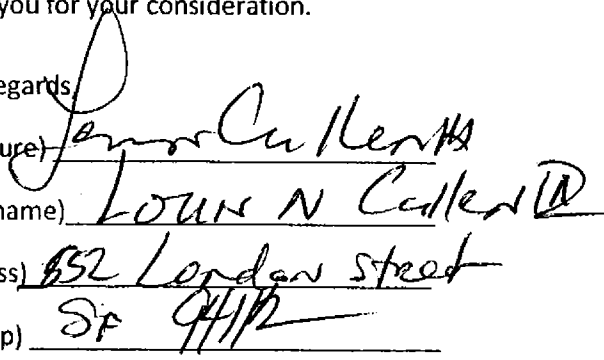 you for your consideration.
egards,
ure) Cullen
name) Louis N Cullen III
ss) 552 London street
p) SF 94112